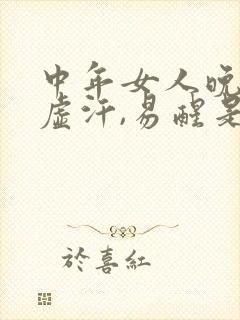 中年女人晚
虚汗,易醒是
於喜紅